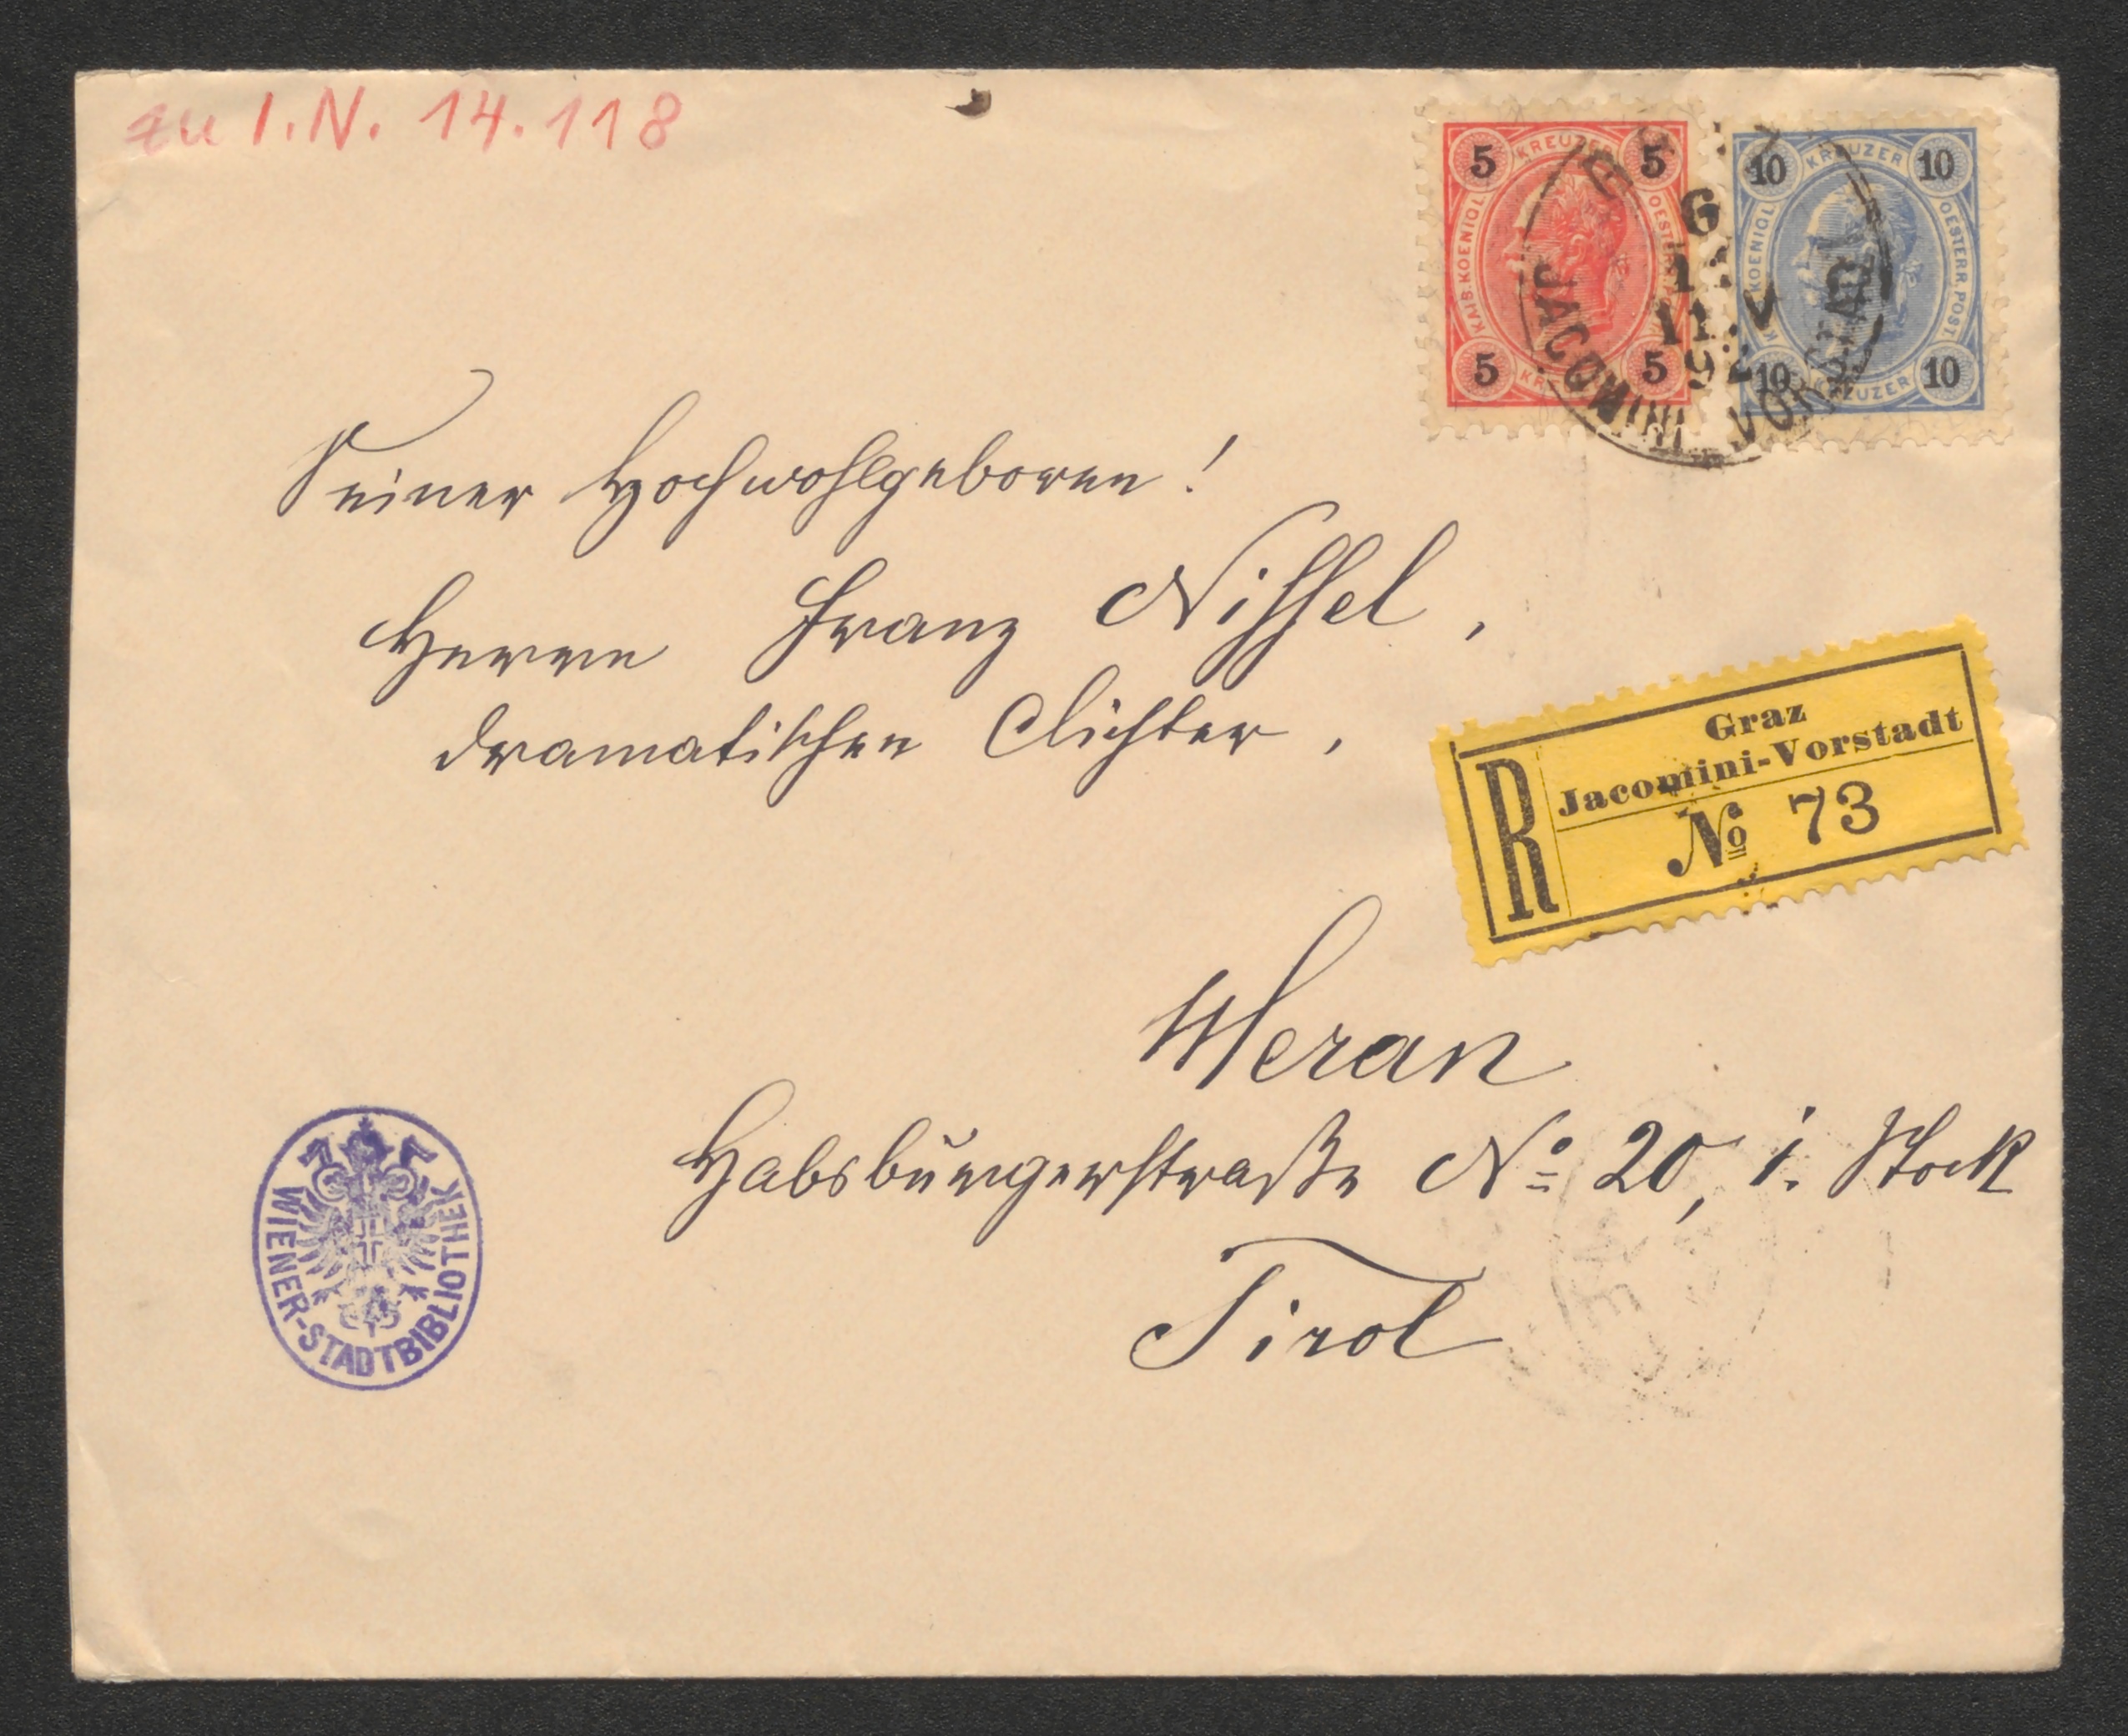 zu I.N. 14.118
5 KREUZER 5
KAIS. KOENIGL. OESTERR.
5 5
10 KREUZER 10
KOENIGL. OESTERR. POST.
10 KREUZER 10
GRAZ
JACOMINI-VORSTADT
11.V
92
Seiner Hochwohlgeboren!
Herrn Franz Nissel,
dramatischen Dichter,
Graz
Jacomini-Vorstadt
R № 73
Meran
Habsburgerstraße No 20, i. Stock
Tirol
WIENER-STADTBIBLIOTHEK